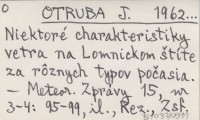 O
OTRUBA J. 1962...
Niektoré charakteristiky
vetra na Lomnickom štíte
za rôznych typov počasia.
– Meteor. Zprávy 15, nr
3-4: 95-99, il., Rez., Zsf.